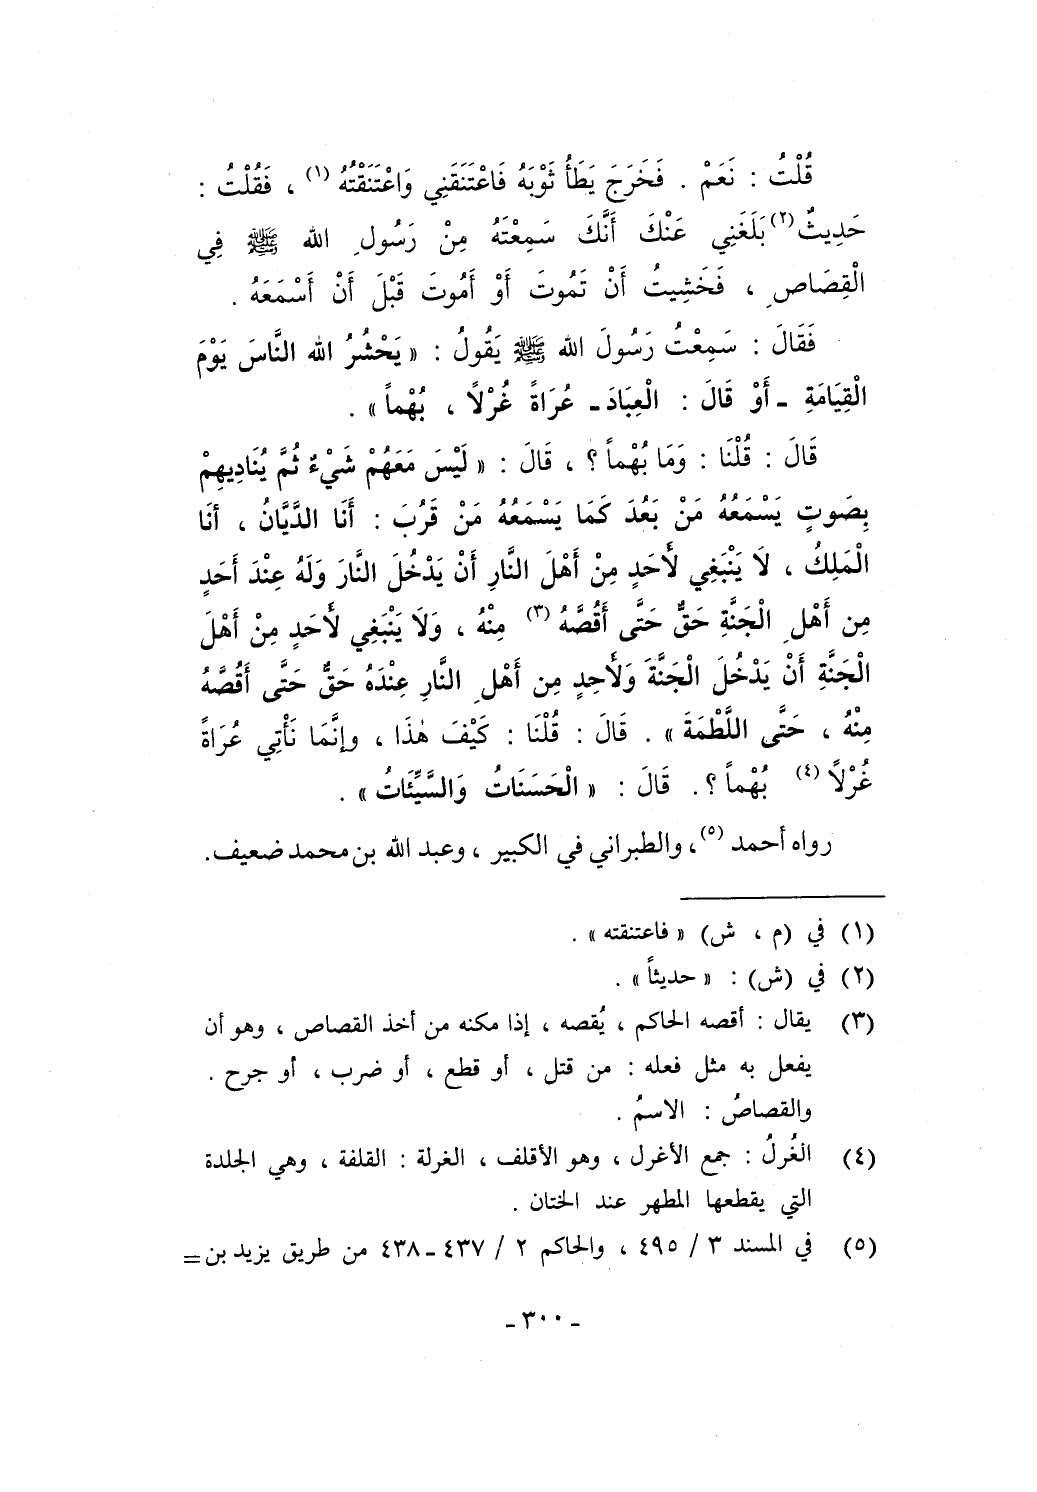 قُلْتُ : نَعَمْ . فَخَرَجَ يَطَأُ ثَوْبَهُ فَاعْتَنَقَنِي وَاعْتَنَقْتُهُ (١) ، فَقُلْتُ :
حَدِيثٌ (٢) بَلَغَنِي عَنْكَ أَنَّكَ سَمِعْتَهُ مِنْ رَسُولِ الله ﷺ فِي
الْقِصَاصِ ، فَخَشِيتُ أَنْ تَمُوتَ أَوْ أَمُوتَ قَبْلَ أَنْ أَسْمَعَهُ .
فَقَالَ : سَمِعْتُ رَسُولَ الله ﷺ يَقُولُ : « يَحْشُرُ الله النَّاسَ يَوْمَ
الْقِيَامَةِ - أَوْ قَالَ : الْعِبَادَ - عُرَاةً غُرْلًا ، بُهْماً » .
قَالَ : قُلْنَا : وَمَا بُهْماً ؟ ، قَالَ : « لَيْسَ مَعَهُمْ شَيْءٌ ثُمَّ يُنَادِيهِمْ
بِصَوتٍ يَسْمَعُهُ مَنْ بَعُدَ كَمَا يَسْمَعُهُ مَنْ قَرُبَ : أَنَا الدَّيَّانُ ، أَنَا
الْمَلِكُ ، لاَ يَنْبَغِي لأَحَدٍ مِنْ أَهْلَ النَّارِ أَنْ يَدْخُلَ النَّارَ وَلَهُ عِنْدَ أَحَدٍ
مِن أَهْلِ الْجَنَّةِ حَقٌّ حَتَّى أَقُصَّهُ (٣) مِنْهُ ، وَلَا يَنْبَغِي لأَحَدٍ مِنْ أَهْلَ
الْجَنَّةِ أَنْ يَدْخُلَ الْجَنَّةَ وَلأَحِدٍ مِن أَهْلِ النَّارِ عِنْدَهُ حَقٌّ حَتَّى أَقُصَّهُ
مِنْهُ ، حَتَّى اللَّطْمَةَ » . قَالَ : قُلْنَا : كَيْفَ هٰذَا ، وإنَّمَا نَأْتِي عُرَاةً
غُرْلًا (٤) بُهْماً ؟. قَالَ : « الْحَسَنَاتُ وَالسَّيِّئَاتُ » .
رواه أحمد (٥) ، والطبراني في الكبير ، وعبد الله بن محمد ضعيف.
(١) في (م ، ش) « فاعتنقته » .
(٢) في (ش) : « حديثاً » .
(٣) يقال : أقصه الحاكم ، يُقصه ، إذا مكنه من أخذ القصاص ، وهو أن
يفعل به مثل فعله : من قتل ، أو قطع ، أو ضرب ، أو جرح .
والقصاصُ : الاسمُ .
(٤) الغُرلُ : جمع الأغرل ، وهو الأقلف ، الغرلة : القلفة ، وهي الجلدة
التي يقطعها المطهر عند الختان .
(٥) في المسند ٣ / ٤٩٥ ، والحاكم ٢ / ٤٣٧ - ٤٣٨ من طريق يزيد بن =
- ٣٠٠ -